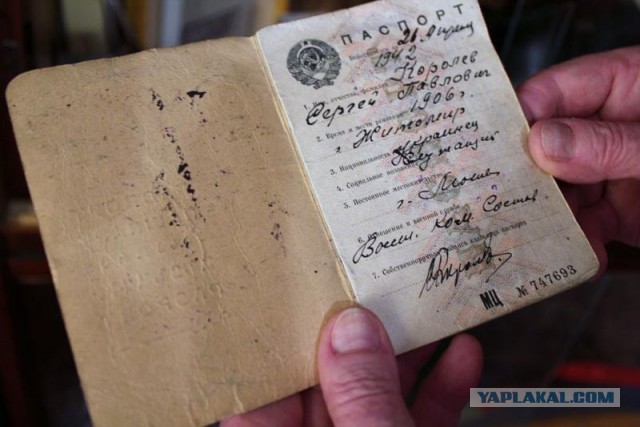 ПАСПОРТ
26 Апреля
1942
Королев
Сергей Павлович
2. Время и место рождения
1906 г.
г. Житомир
3. Национальность украинец
4. Социальное положение служащий
5. Постоянное местожительство
г.
Воен. ком. Состав
7. Собственноручная подпись владельца паспорта
МЦ № 747693
YAPLAKAL.COM